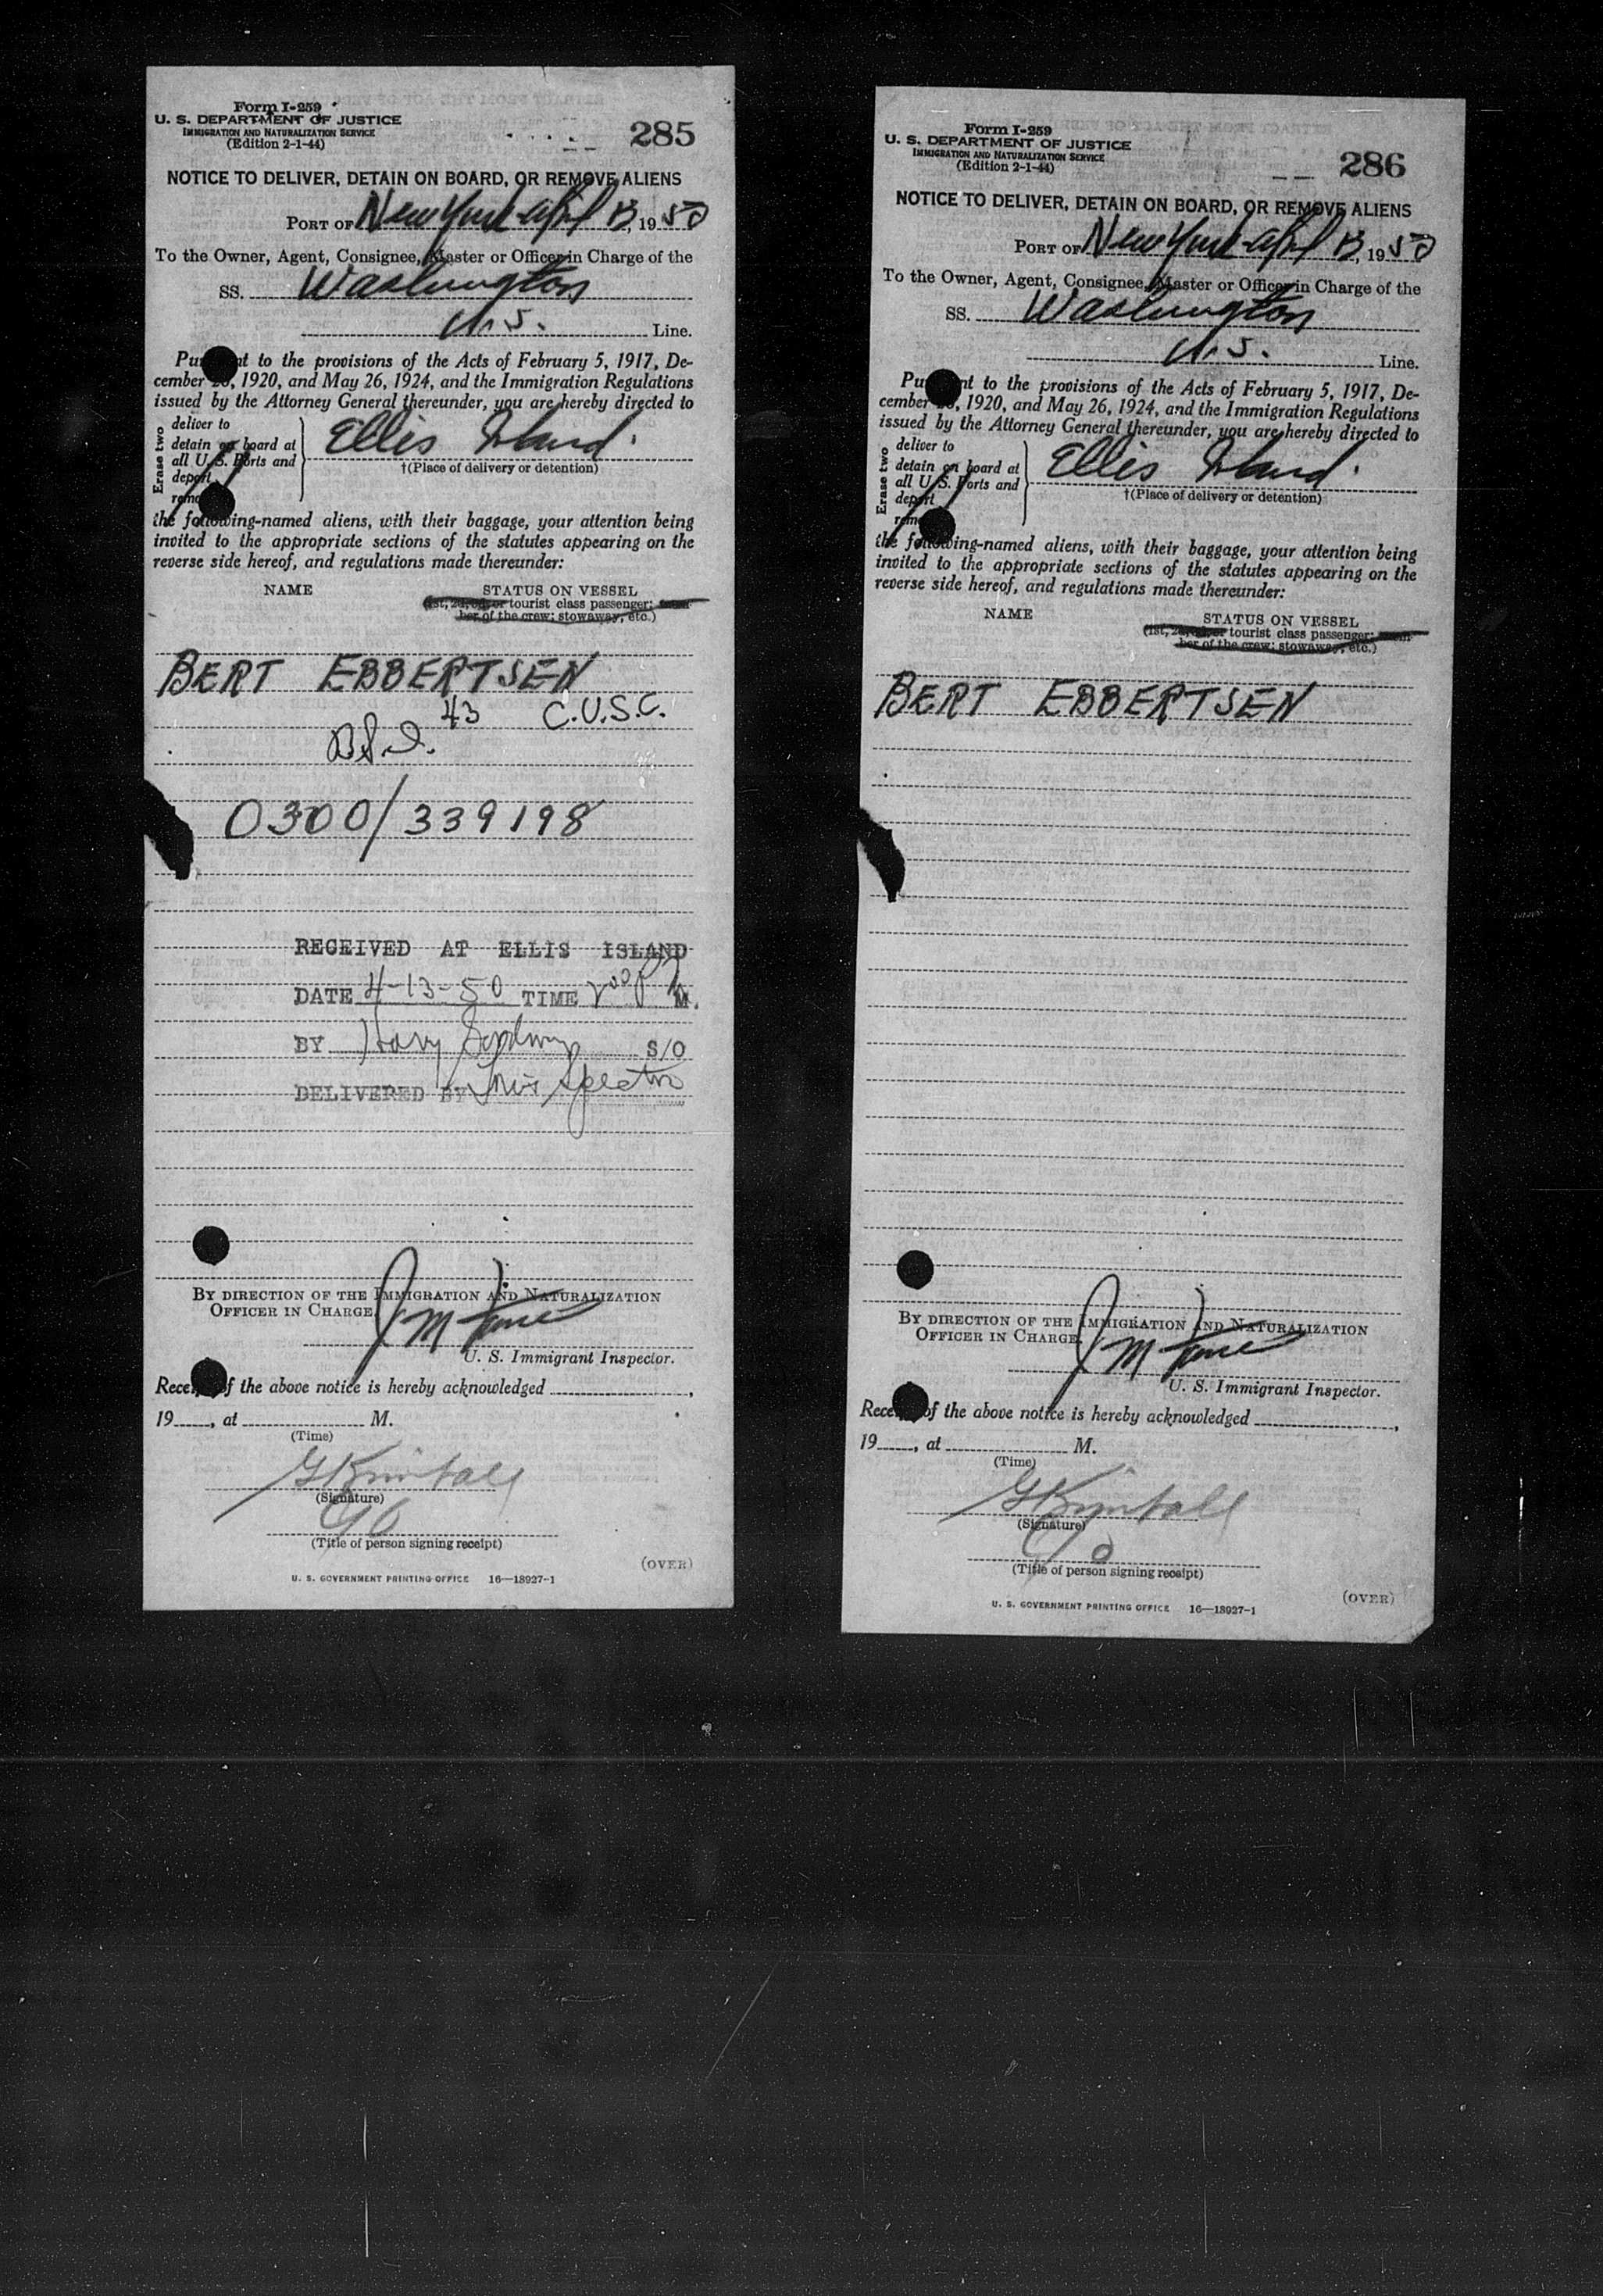 Form I-259
U. S. DEPARTMENT OF JUSTICE
IMMIGRATION AND NATURALIZATION SERVICE
(Edition 2-1-44)
285
NOTICE TO DELIVER, DETAIN ON BOARD, OR REMOVE ALIENS
PORT OF New York April 13, 1950
To the Owner, Agent, Consignee, Master or Officer in Charge of the
SS. Washington
U.S. Line.
Pu nt to the provisions of the Acts of February 5, 1917, De-
cember , 1920, and May 26, 1924, and the Immigration Regulations
issued by the Attorney General thereunder, you are hereby directed to
Erase two
deliver to
detain on board at
all U. S. Ports and
deport
remo
Ellis Island.
†(Place of delivery or detention)
the following-named aliens, with their baggage, your attention being
invited to the appropriate sections of the statutes appearing on the
reverse side hereof, and regulations made thereunder:
NAME STATUS ON VESSEL
(1st, 2d, 3d, or tourist class passenger; mem-
ber of the crew; stowaway, etc.)
BERT EBBERTSEN
43 C.U.S.C.
B.S.I.
0300/339198
RECEIVED AT ELLIS ISLAND
DATE 4-13-50 TIME 200 P M.
BY Harry S/O
DELIVERED BY
BY DIRECTION OF THE IMMIGRATION AND NATURALIZATION
OFFICER IN CHARGE.
J M
U. S. Immigrant Inspector.
Rece of the above notice is hereby acknowledged ,
19 , at M.
(Time)
G Kimball
(Signature)
(Title of person signing receipt)
(OVER)
U. S. GOVERNMENT PRINTING OFFICE 16—18927-1
Form I-259
U. S. DEPARTMENT OF JUSTICE
IMMIGRATION AND NATURALIZATION SERVICE
(Edition 2-1-44)
286
NOTICE TO DELIVER, DETAIN ON BOARD, OR REMOVE ALIENS
PORT OF New York April 13, 1950
To the Owner, Agent, Consignee, Master or Officer in Charge of the
SS. Washington
U.S. Line.
Pu nt to the provisions of the Acts of February 5, 1917, De-
cember , 1920, and May 26, 1924, and the Immigration Regulations
issued by the Attorney General thereunder, you are hereby directed to
Erase two
deliver to
detain on board at
all U. S. Ports and
deport
rem
Ellis Island.
†(Place of delivery or detention)
the following-named aliens, with their baggage, your attention being
invited to the appropriate sections of the statutes appearing on the
reverse side hereof, and regulations made thereunder:
NAME STATUS ON VESSEL
(1st, 2d, 3d, or tourist class passenger; mem-
ber of the crew; stowaway, etc.)
BERT EBBERTSEN
BY DIRECTION OF THE IMMIGRATION AND NATURALIZATION
OFFICER IN CHARGE.
J M
U. S. Immigrant Inspector.
Rece of the above notice is hereby acknowledged ,
19 , at M.
(Time)
G Kimball
(Signature)
(Title of person signing receipt)
(OVER)
U. S. GOVERNMENT PRINTING OFFICE 16—18927-1